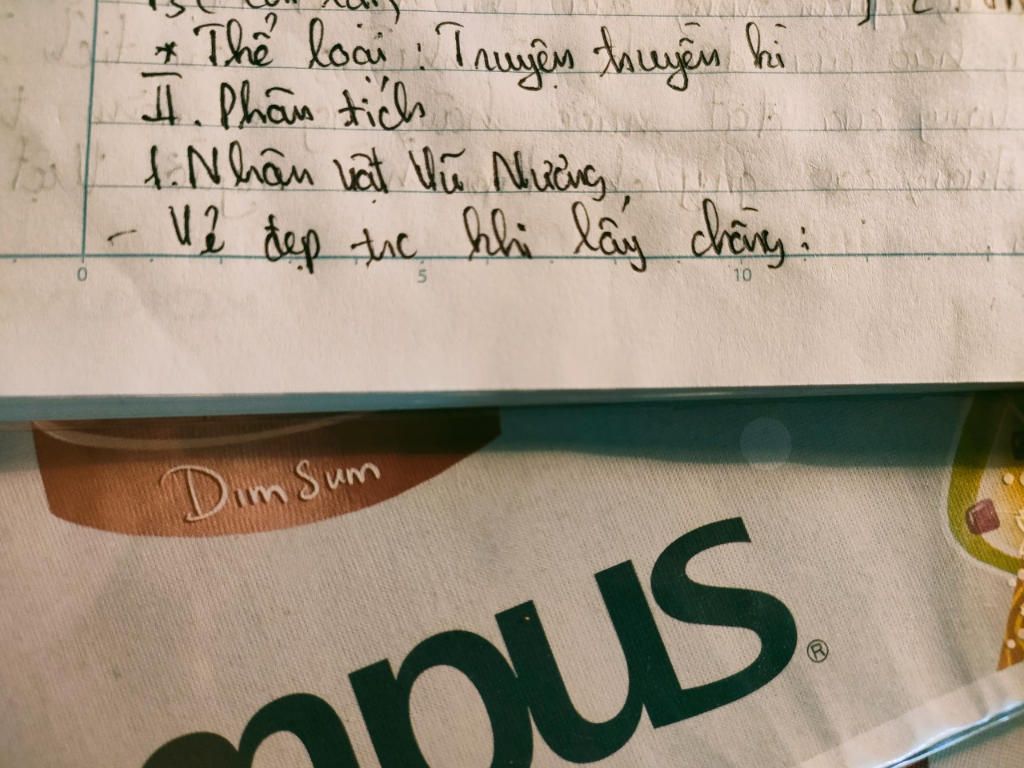 * Thể loại : Truyện truyền kì
II. Phân tích
1. Nhân vật Vũ Nương
- Vẻ đẹp trc khi lấy chồng :
0 5 10
Dim Sum
mpus ®